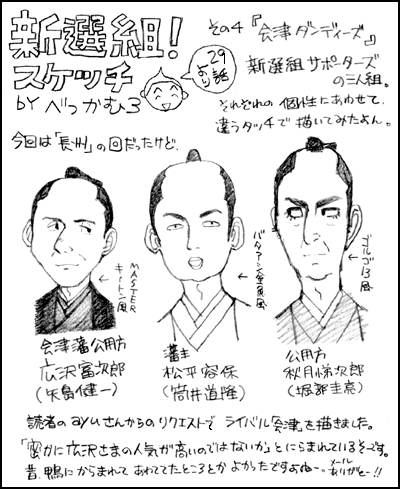 新選組!
スケッチ
BY べつかむろ
29話より
その4『会津ダンディーズ』
新選組サポーターズ
の三人組。
それぞれの個性にあわせて、
違うタッチで描いてみたよん。
今回は「長州」の回だったけど、
←MASTERキートン風
←バタアシ金魚風
←ゴルゴ13風
会津藩公用方
広沢富次郎
(矢島健一)
藩主
松平容保
(筒井道隆)
公用方
秋月悌次郎
(堀部圭亮)
読者のayuさんからのリクエストで ライバル会津を描きました。
「密かに広沢さまの人気が高いのではないか」とにらまれているそーです。
昔、鴨にからまれて あわててたところとか よかったですよねー。メールありがとー!!